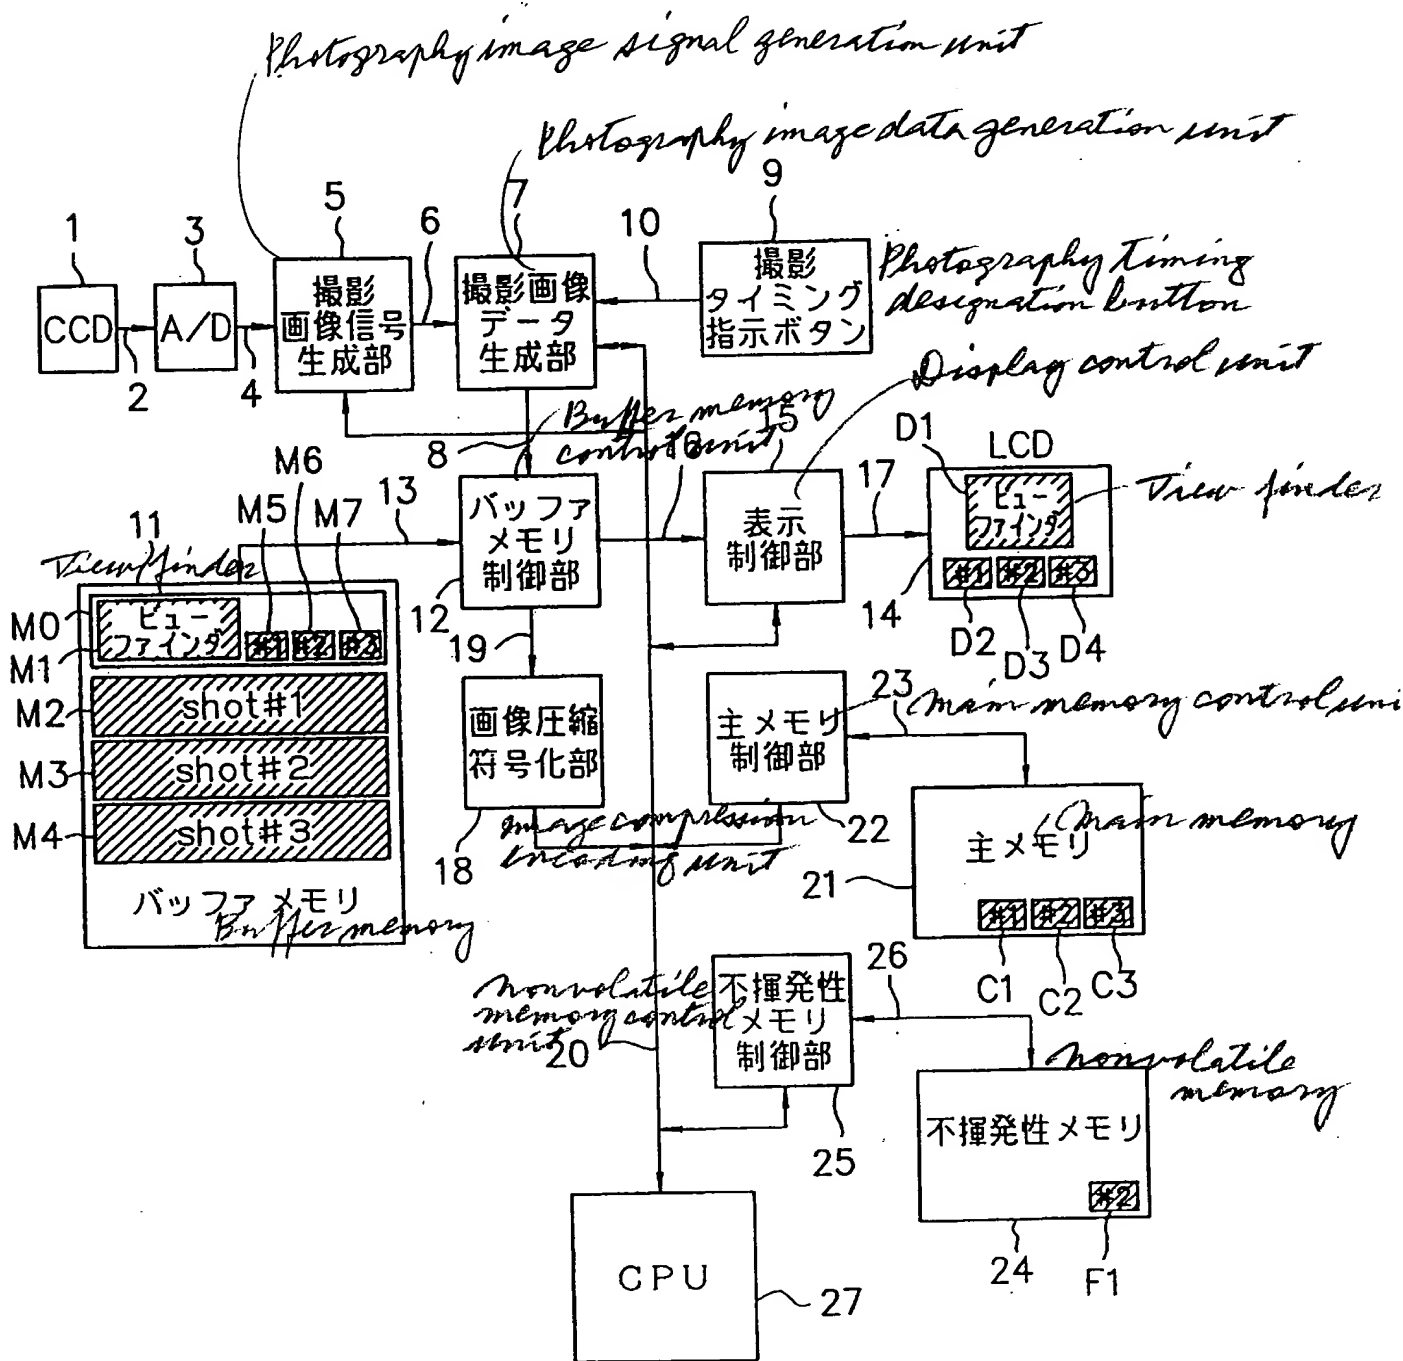 Photography image signal generation unit
Photography image data generation unit
1
3
5
6
7
10
9
CCD
A/D
撮影
画像信号
生成部
撮影画像
データ
生成部
撮影
タイミング
指示ボタン
Photography timing
designation button
2
4
8
Buffer memory
control unit
Display control unit
15
16
17
D1
LCD
ビュー
ファインダ
View finder
#1 #2 #3
14
D2
D3
D4
M6
M5
M7
13
11
View finder
バッファ
メモリ
制御部
12
表示
制御部
M0
M1
ビュー
ファインダ
#1 #2 #3
M2
shot#1
M3
shot#2
M4
shot#3
バッファメモリ
Buffer memory
19
画像圧縮
符号化部
18
Image compression
encoding unit
主メモリ
制御部
22
23
Main memory control uni
主メモリ
Main memory
21
#1 #2 #3
C1
C2
C3
Nonvolatile
memory control
unit
20
不揮発性
メモリ
制御部
25
26
Nonvolatile
memory
不揮発性メモリ
#2
24
F1
CPU
27